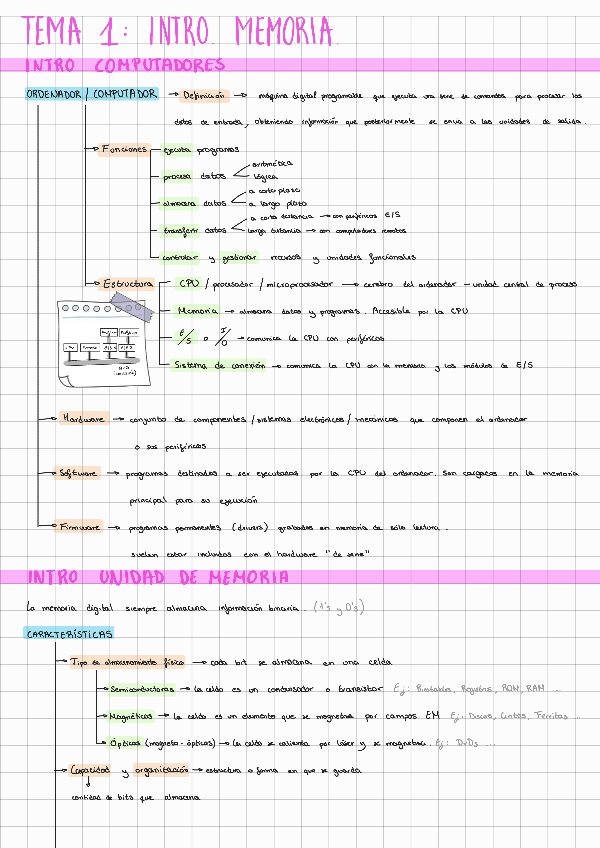 TEMA 1: INTRO. MEMORIA.
INTRO COMPUTADORES
ORDENADOR / COMPUTADOR → Definición → máquina digital programable que ejecuta una serie de comandos para procesar los
datos de entrada, obteniendo información que posteriormente se envía a las unidades de salida.
Funciones
ejecuta programas
procesa datos
aritmética
lógica
almacena datos
a corto plazo
a largo plazo
transferir datos
a corta distancia → con periféricos E/S
larga distancia → con computadores remotos
controlar y gestionar recursos y unidades funcionales
Estructura
CPU / procesador / microprocesador → cerebro del ordenador - unidad central de proceso
Memoria → almacena datos y programas. Accesible por la CPU
E/S o I/O → comunica la CPU con periféricos
Sistema de conexión → comunica la CPU con la memoria y los módulos de E/S
Hardware → conjunto de componentes / sistemas electrónicos / mecánicos que componen el ordenador
o sus periféricos
Software → programas destinados a ser ejecutados por la CPU del ordenador. Son cargados en la memoria
principal para su ejecución
Firmware → programas permanentes (drivers) grabados en memoria de sólo lectura.
suelen estar incluidos con el hardware "de serie"
INTRO UNIDAD DE MEMORIA
La memoria digital siempre almacena información binaria. (1's y 0's)
CARACTERÍSTICAS
Tipo de almacenamiento físico → cada bit se almacena en una celda
Semiconductoras → la celda es un condensador o transistor Ej: Biestables, Registros, ROM, RAM ...
Magnéticas → la celda es un elemento que se magnetiza por campos EM Ej: Discos, Cintas, Ferritas ...
Ópticas (magneto-ópticas) → la celda se calienta por láser y se magnetiza. Ej: DVDs ...
Capacidad y organización → estructura o forma en que se guarda
cantidad de bits que almacena